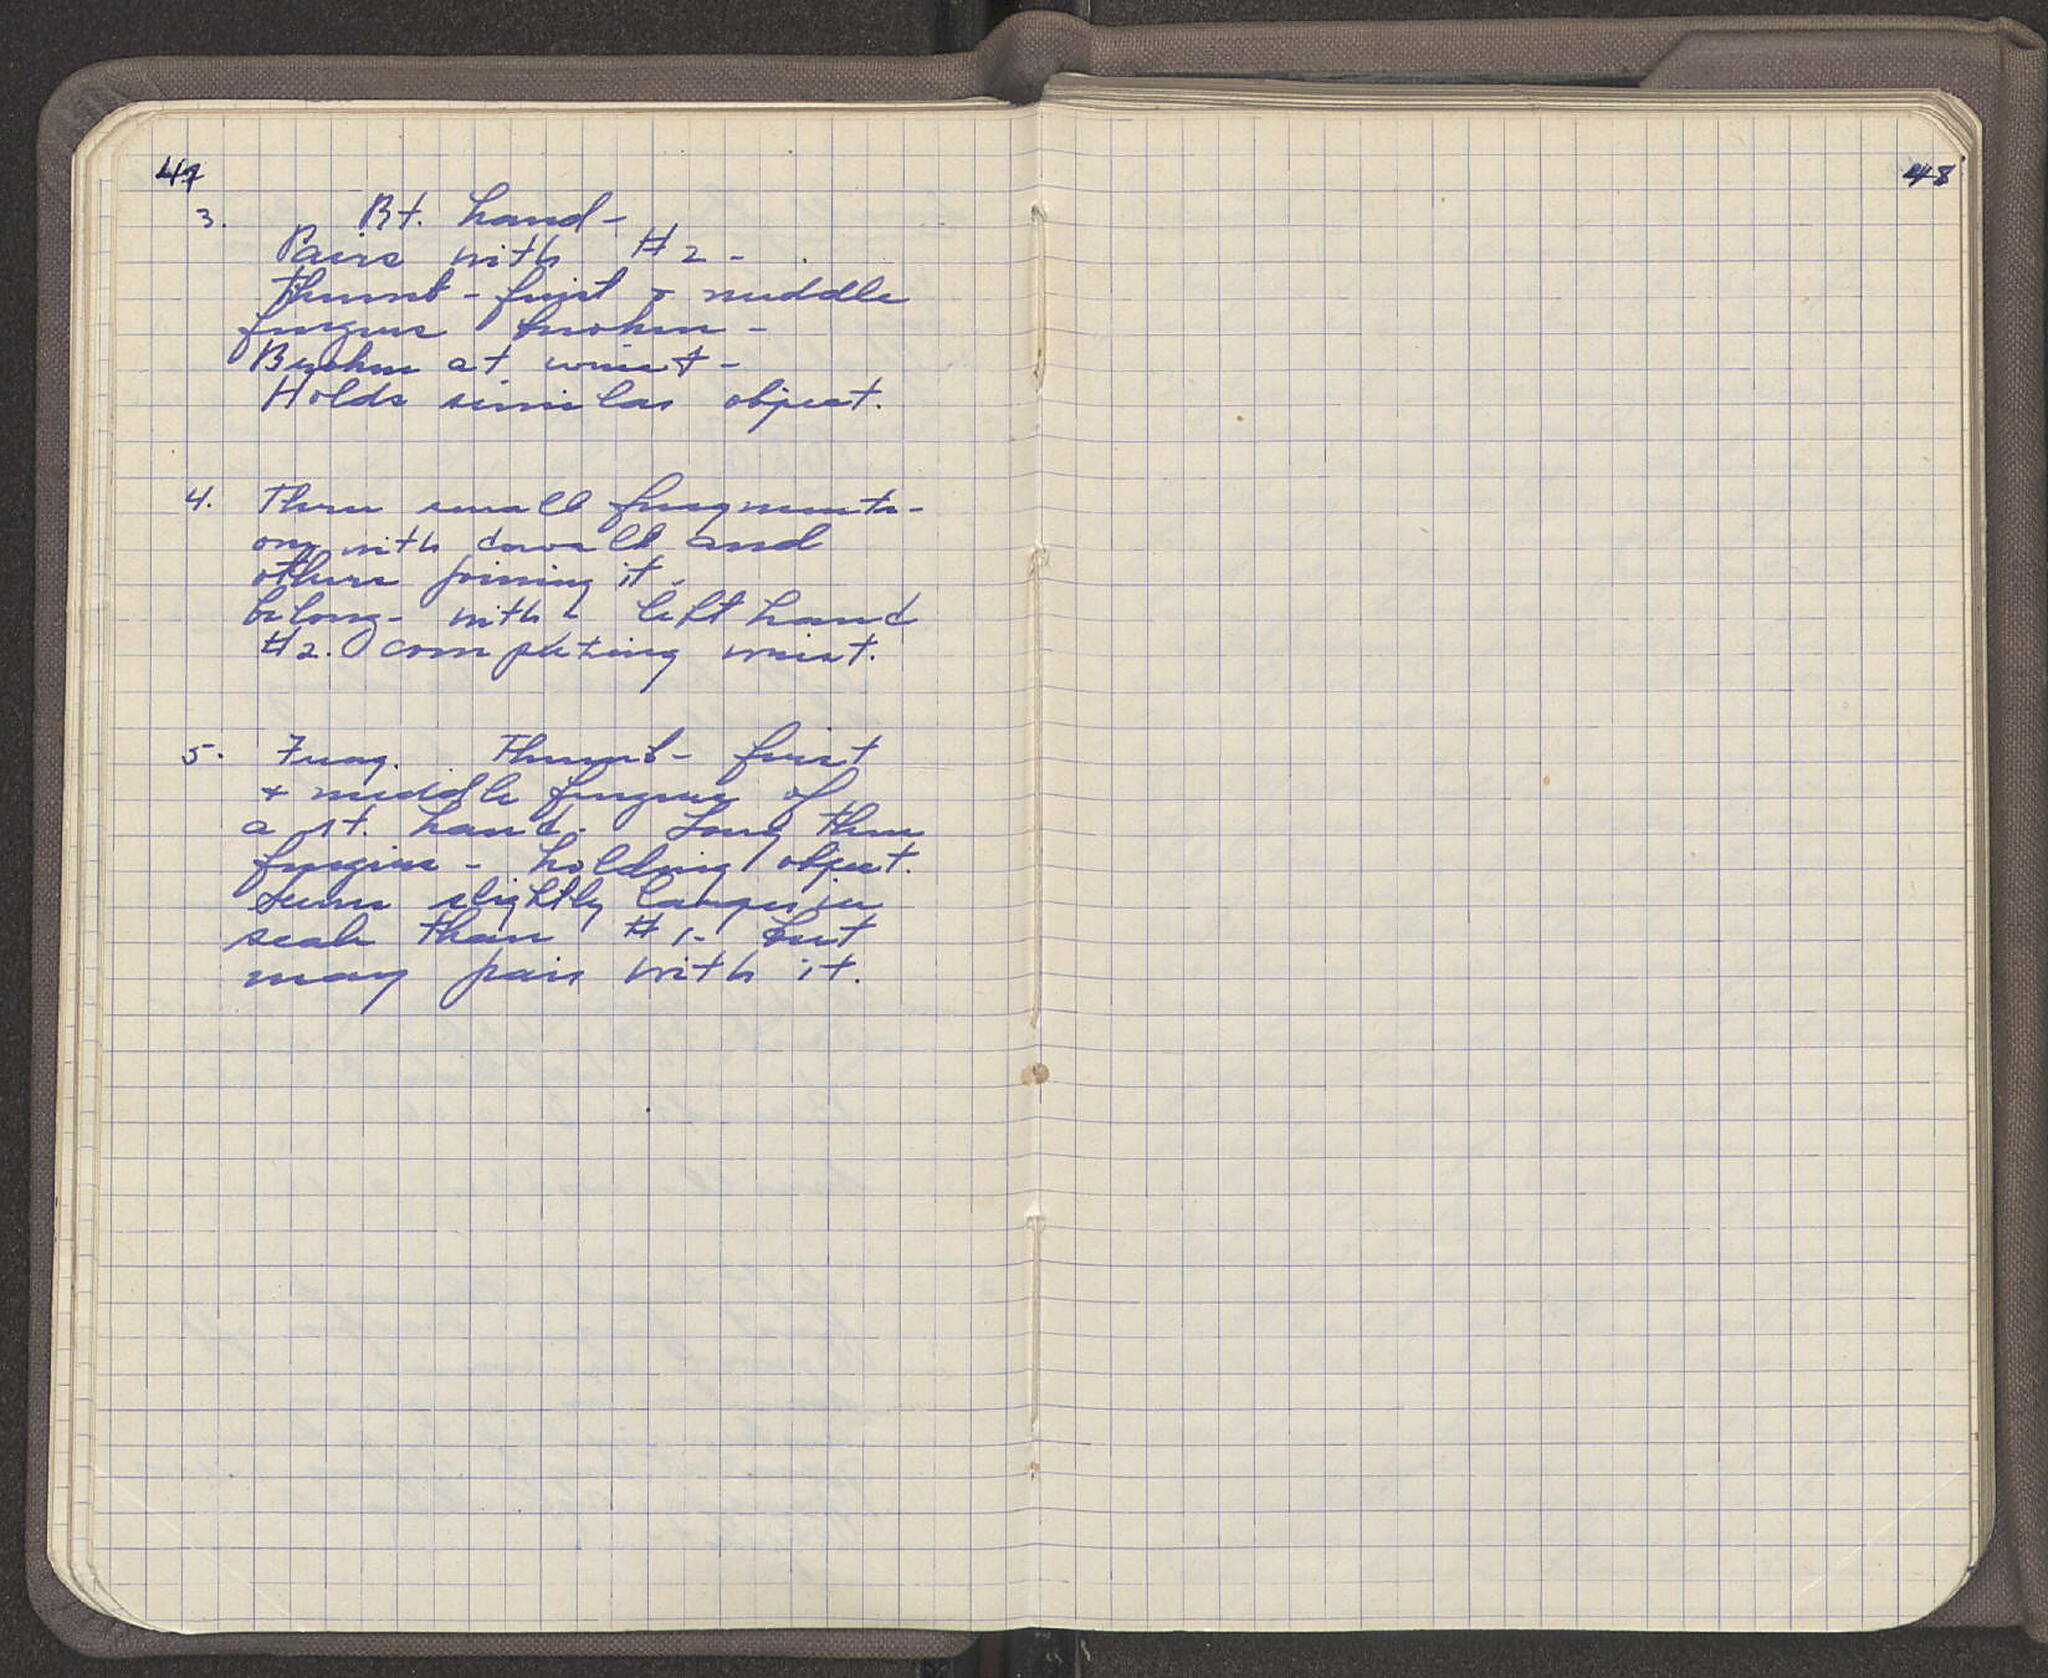 47
3. Rt. hand -
Pairs with #2 -
Thumb - first + middle
fingers broken -
Broken at wrist -
Holds similar object.
4. Three small fragments -
one with dowell and
others joining it -
belong - with left hand
#2. completing wrist.
5. Frag. Thumb - first
+ middle fingers of
a rt. hand. Long thin
fingers - holding object.
Seems slightly larger in
scale than #1 - but
may pair with it.
48